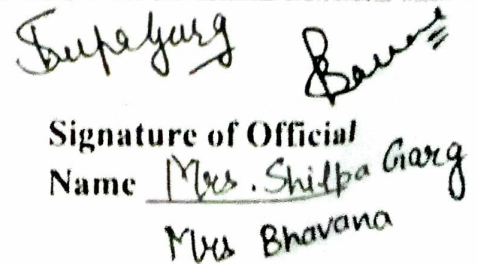 Signature of Official
Name Mrs. Shilpa Garg
Mrs Bhavana